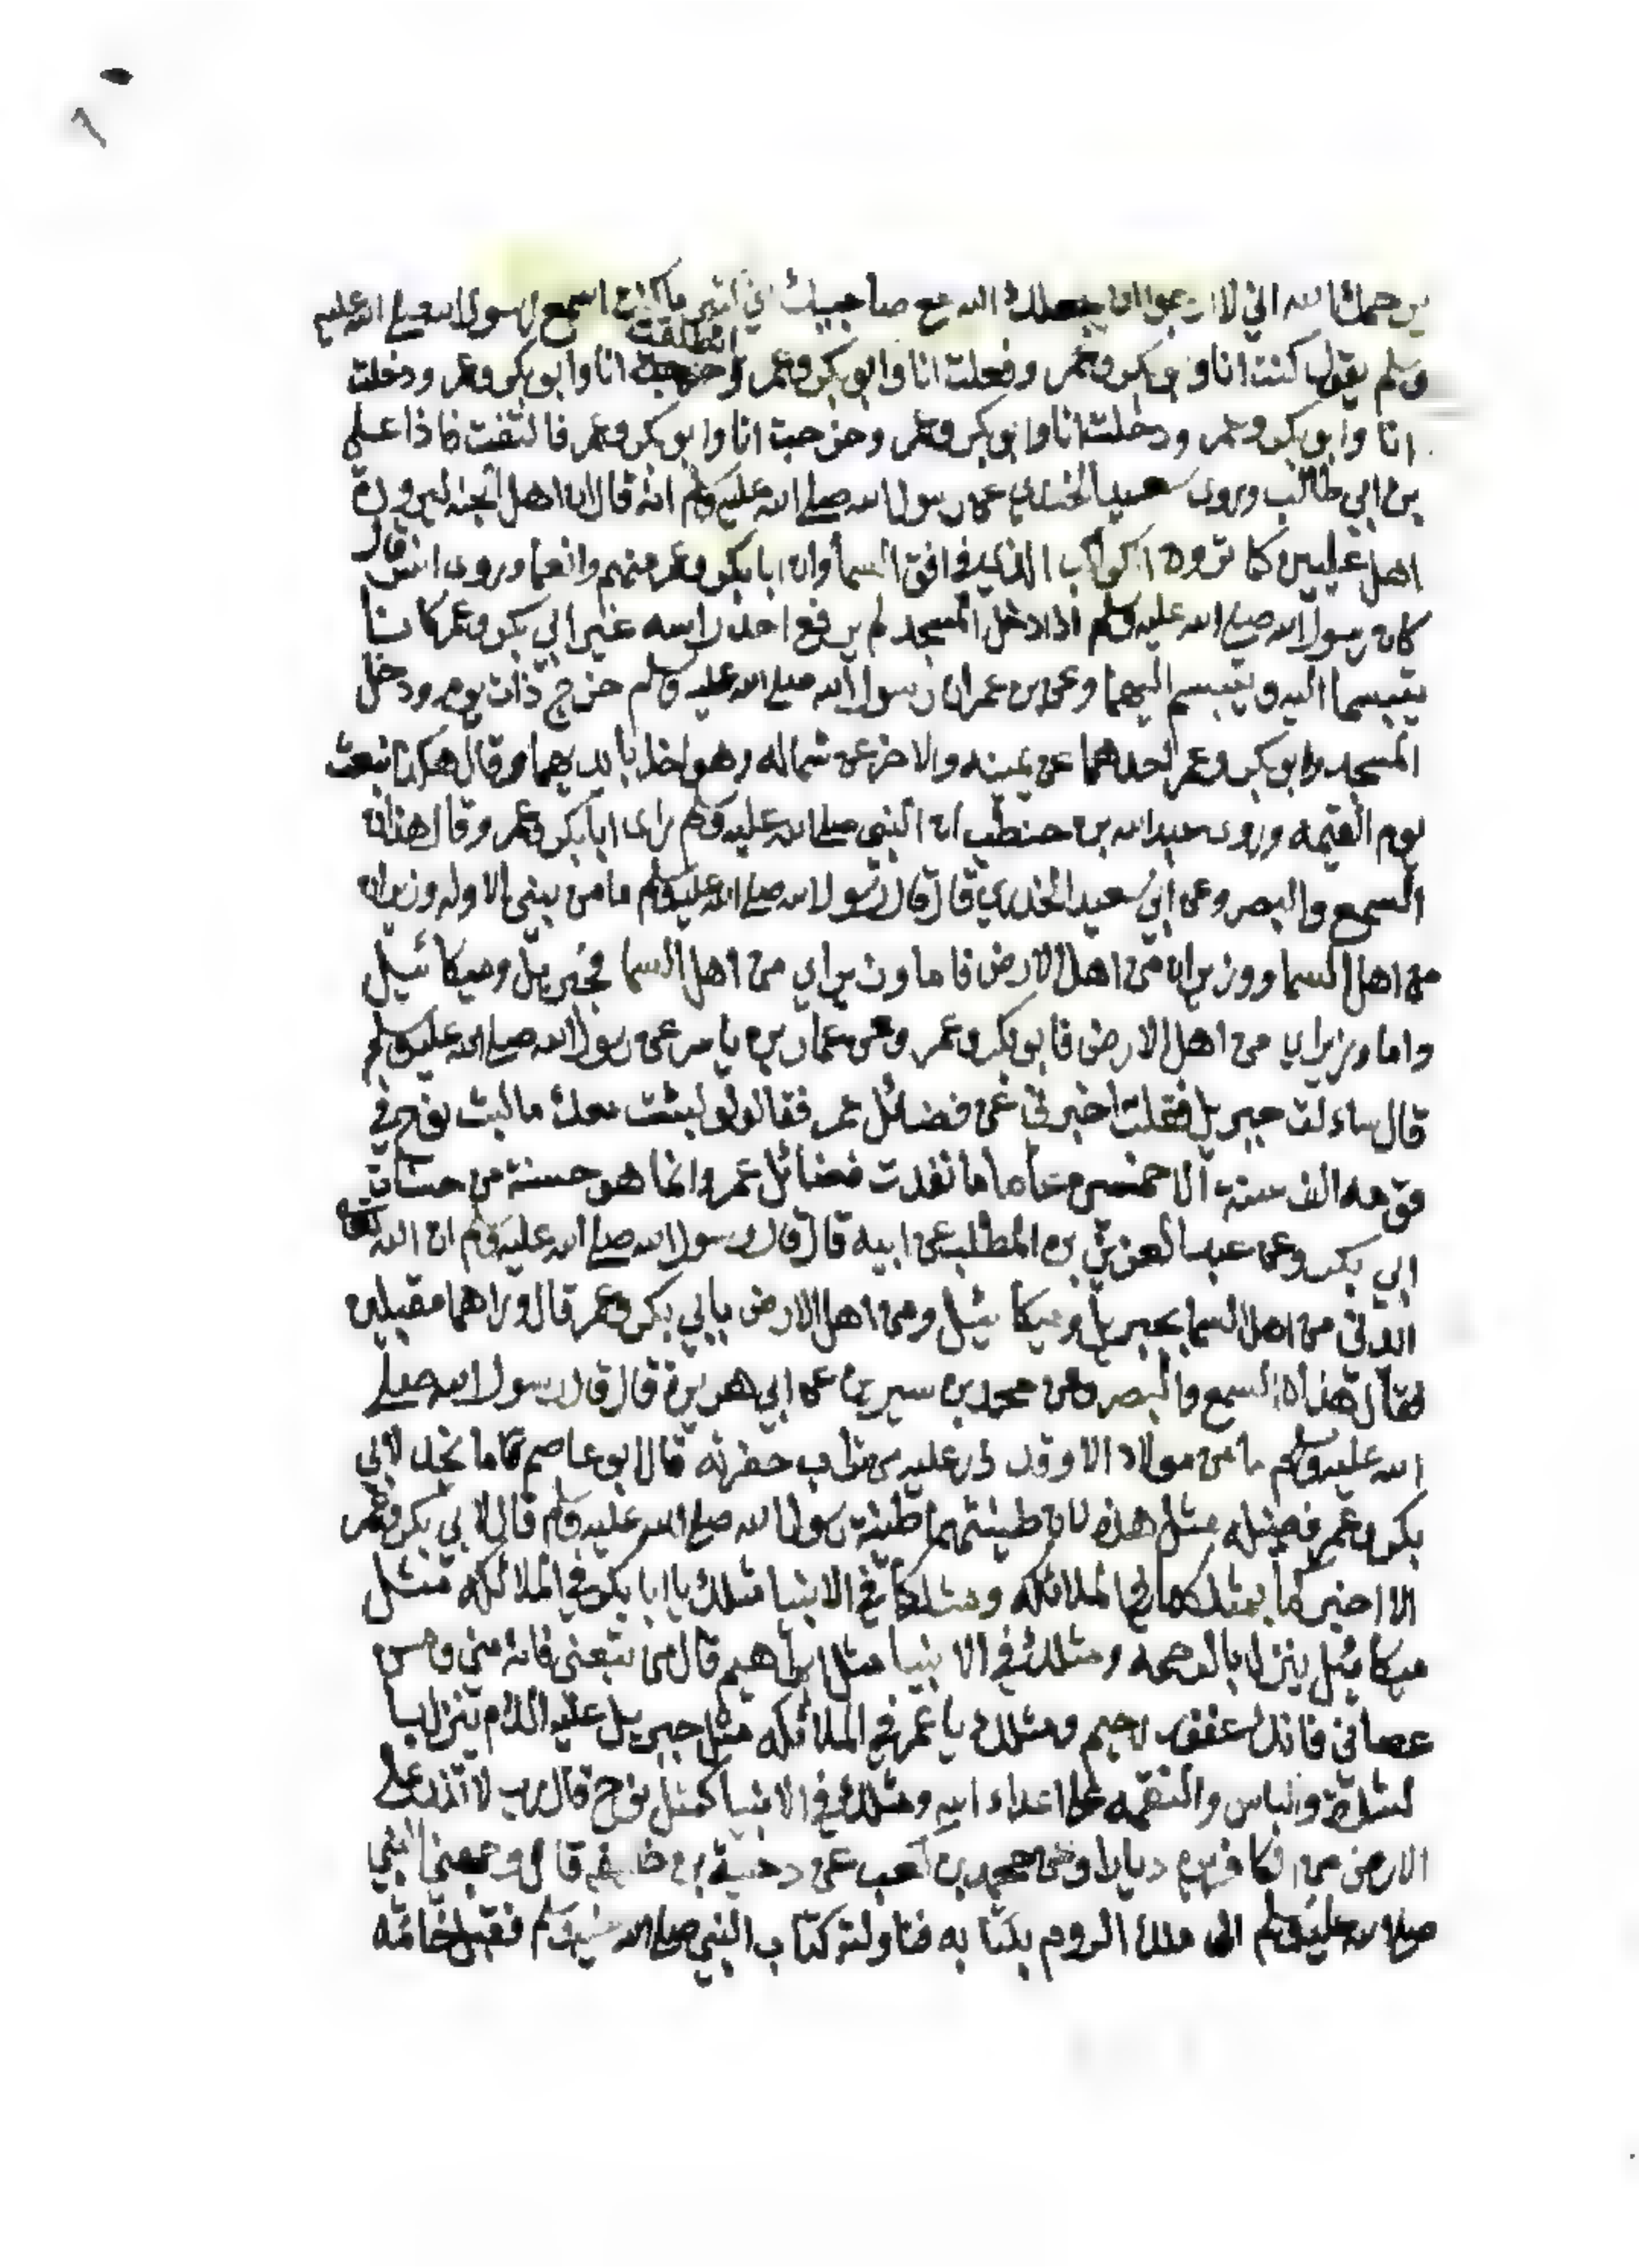 يرحمك الله اني لا ارجوا ان يجعلك الله مع صاحبيك اني كثير ما كنت اسمع رسول الله صلى الله عليه
وسلم يقول كنت انا وابو بكر وعمر وفعلت انا وابو بكر وعمر وانطلقت انا وابو بكر وعمر ودخلت
انا وابو بكر وعمر ودخلت انا وابو بكر وعمر وخرجت انا وابو بكر وعمر فالتفت فاذا علي
بن ابي طالب وروى سعيد الخدري عن رسول الله صلى الله عليه وسلم انه قال ان اهل الجنه ليرون
اهل عليين كما ترون الكواكب الذي في افق السما وان ابا بكر وعمر منهم وانعما وروى انس قال
كان رسول الله صلى الله عليه وسلم اذا دخل المسجد لم يرفع احد راسه غير ابي بكر وعمر كانا
يتبسما اليه ويتبسم اليهما وعن بن عمر ان رسول الله صلى الله عليه وسلم خرج ذات يوم ودخل
المسجد وابو بكر وعمر احدهما عن يمينه والاخر عن شماله وهو اخذ بايديهما وقال هكذا نبعث
يوم القيمه وروى عبد الله بن حنطب ان النبي صلى الله عليه وسلم راى ابا بكر وعمر وقال هذان
السمع والبصر وعن ابي سعيد الخدري قال قال رسول الله صلى الله عليه وسلم ما من نبي الا وله وزيران
من اهل السما ووزيران من اهل الارض فاما وزيراي من اهل السما فجبريل وميكائيل
واما وزيراي من اهل الارض فابو بكر وعمر وعن عمار بن ياسر عن رسول الله صلى الله عليه وسلم
قال ساءلت جبريل فقلت اخبرني عن فضائل عمر فقال لو لبثت معك ما لبث نوح في
قومه الف سنة الا خمسين عاما ما نفدت فضائل عمر وانما هو حسنة من حسنات
ابي بكر وعن عبد العزيز بن المطلب عن ابيه قال قال رسول الله صلى الله عليه وسلم ان الله تعالى
ايدني من اهل السما بجبريل وميكائيل ومن اهل الارض بابي بكر وعمر قال وراهما مقبلين
فقال هذان السمع والبصر وعن محمد بن سيرين عن ابي هريرة قال قال رسول الله صلى
الله عليه وسلم ما من مولاد الا وقد ذر عليه من تراب حفرته قال ابو عاصم فما نجد لابي
بكر وعمر فضيله مثل هذه لان طينتهما طينة رسول الله صلى الله عليه وسلم قال لابي بكر وعمر
الا اخبركما بمثلكما في الملائكه ومثلكما في الانبيا مثلك يا ابا بكر في الملائكه مثل
ميكائيل ينزل بالرحمه ومثلك في الانبيا مثل ابراهيم قال من تبعني فانه مني ومن
عصاني فانك غفور رحيم ومثلك يا عمر في الملائكه مثل جبريل عليه السلام تنزل با
لشدة والباس والنقمه على اعداء الله ومثلك في الانبيا كمثل نوح قال رب لا تذر على
الارض من الكافرين ديارا وعن محمد بن كعب عن دحية بن خليفه قال وجهني النبي
صلى الله عليه وسلم الى ملك الروم بكتابه فناولته كتاب النبي صلى الله عليه وسلم فقبل خاتمه